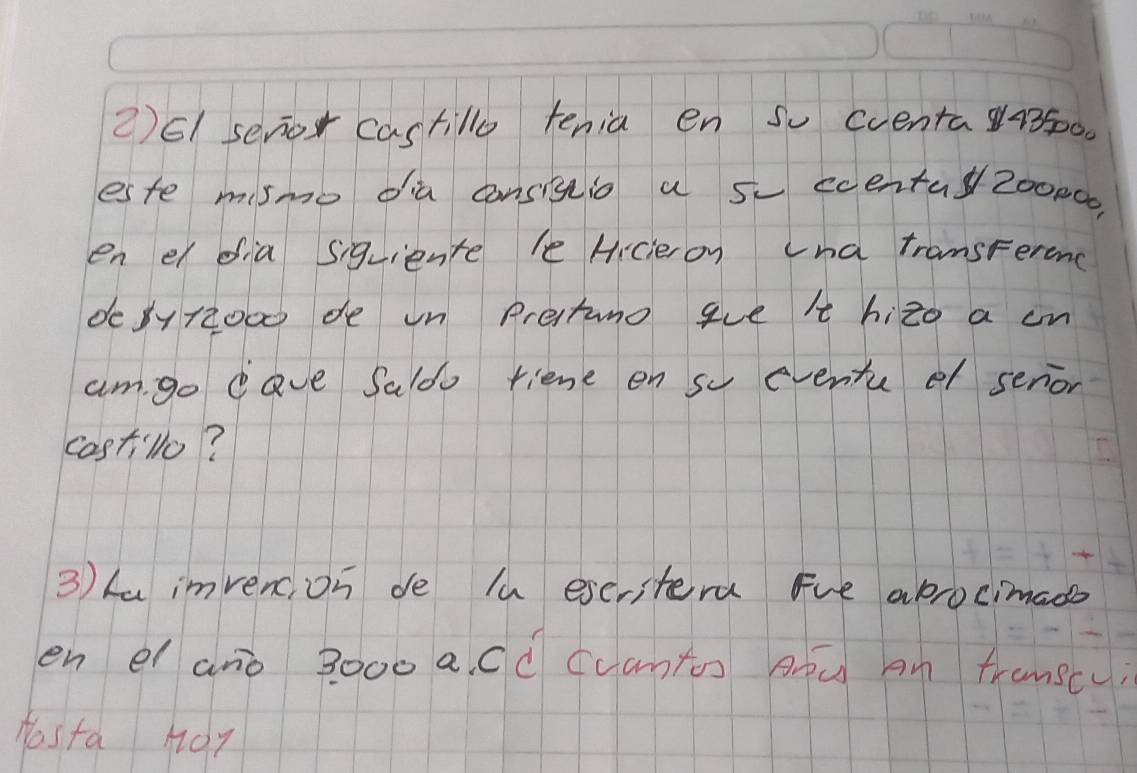 2) El señor castillo tenia en su cuenta $435000
este mismo día consignio a su ccenta $200000,
en el día siguiente le Hicieron una transferenc
de $472000 de un Prestamo que le hizo a un
amigo ¿ Que Saldo tiene en su cuenta el señor
castillo?
3) La imvención de la escritera Fue aprocimado
en el año 3000 a.C ¿ Cuantos Años An transcui
Hasta Hoy